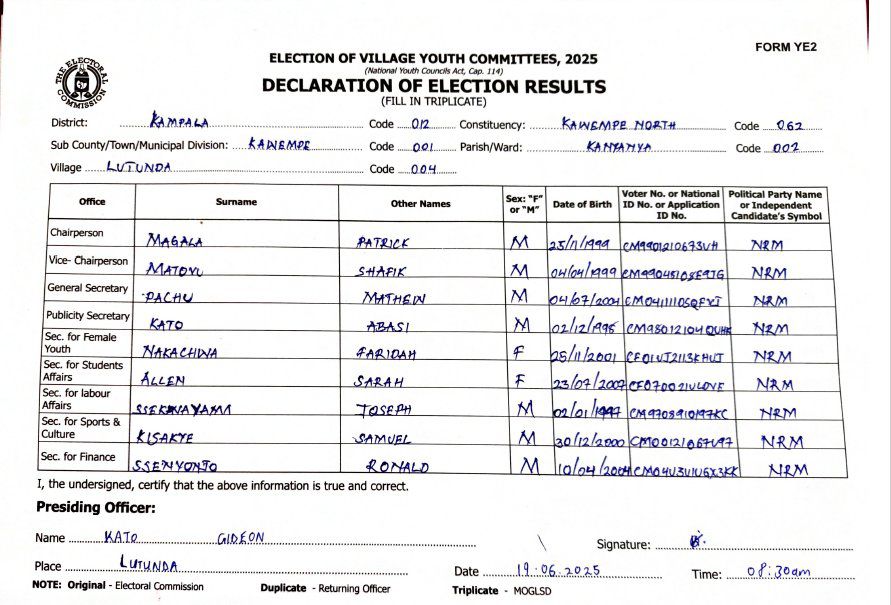 FORM YE2
THE ELECTORAL COMMISSION
ELECTION OF VILLAGE YOUTH COMMITTEES, 2025
(National Youth Councils Act, Cap. 114)
DECLARATION OF ELECTION RESULTS
(FILL IN TRIPLICATE)
District: KAMPALA Code 012 Constituency: KAWEMPE NORTH Code 062
Sub County/Town/Municipal Division: KAWEMPE Code 001 Parish/Ward: KANYANYA Code 002
Village LUTUNDA Code 004
Office Surname Other Names Sex: "F" or "M" Date of Birth Voter No. or National ID No. or Application ID No. Political Party Name or Independent Candidate's Symbol
Chairperson MAGALA PATRICK M 25/11/1999 NRM
Vice- Chairperson MATOVU SHAFIK M 04/04/1999 NRM
General Secretary PACHU M NRM
Publicity Secretary KATO ABASI M NRM
Sec. for Female Youth NAKACHWA FARIDAH F 25/11/2001 NRM
Sec. for Students Affairs ALLEN SARAH F 23/07/2007 NRM
Sec. for labour Affairs JOSEPH M 02/01/1997 NRM
Sec. for Sports & Culture KISAKYE SAMUEL M 30/12/2000 NRM
Sec. for Finance SSENYONJO RONALD M 10/04/2004 NRM
I, the undersigned, certify that the above information is true and correct.
Presiding Officer:
Name KATO GIDEON Signature:
Place LUTUNDA Date 19.06.2025 Time: 08:30am
NOTE: Original - Electoral Commission Duplicate - Returning Officer Triplicate - MOGLSD